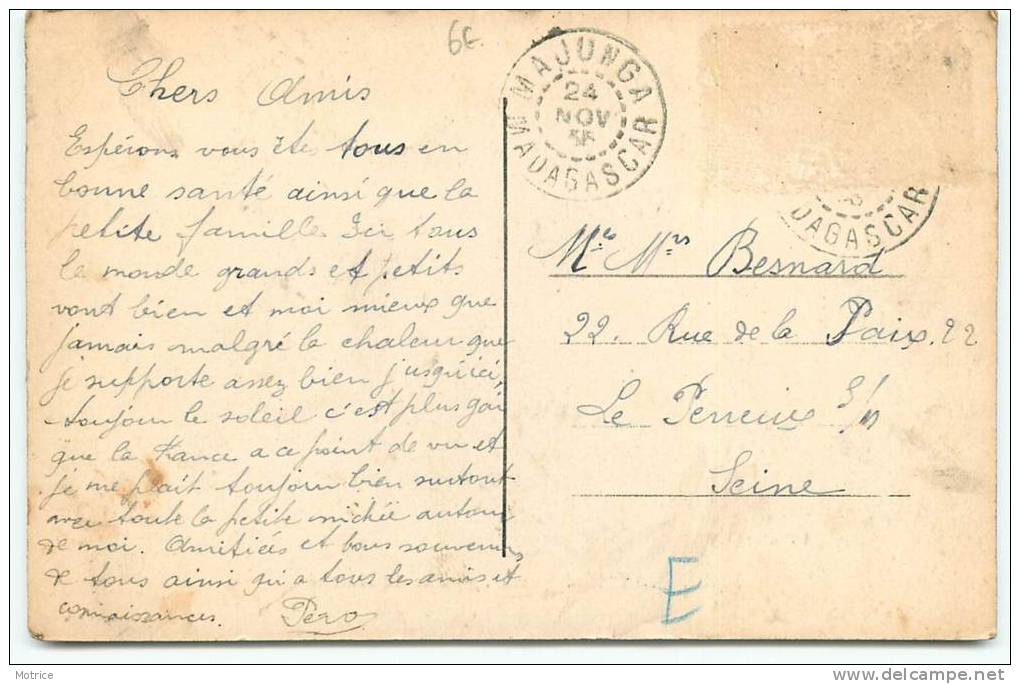 6€
Chers Amis
Espérons vous êtes tous en
bonne santé ainsi que la
petite famille Ici tous
le monde grands et petits
vont bien et moi mieux que
jamais malgré la chaleur que
je supporte assez bien jusqu'ici,
toujour le soleil c'est plus gai
que la France a ce point de vu et
je me plait toujour bien surtout
avec toute la petite nichée autour
de moi. Amitiées et bons souvenirs
de tous ainsi qu'a tous les amis et
connaissances. Pero
MAJUNGA
24
NOV
MADAGASCAR
DAGASCAR
Mr Mrs Besnard
22. Rue de la Paix. 22
Le Perreux S/M
Seine
E
Motrice
www.delcampe.net